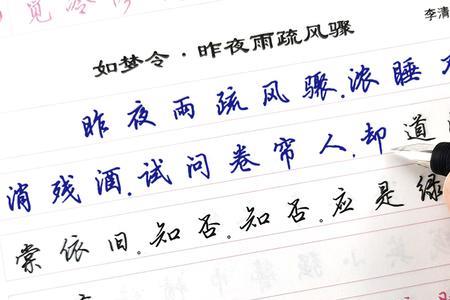 如梦令·昨夜雨疏风骤
李清
昨夜雨疏风骤.浓睡不
消残酒.试问卷帘人.却道
棠依旧.知否.知否.应是绿